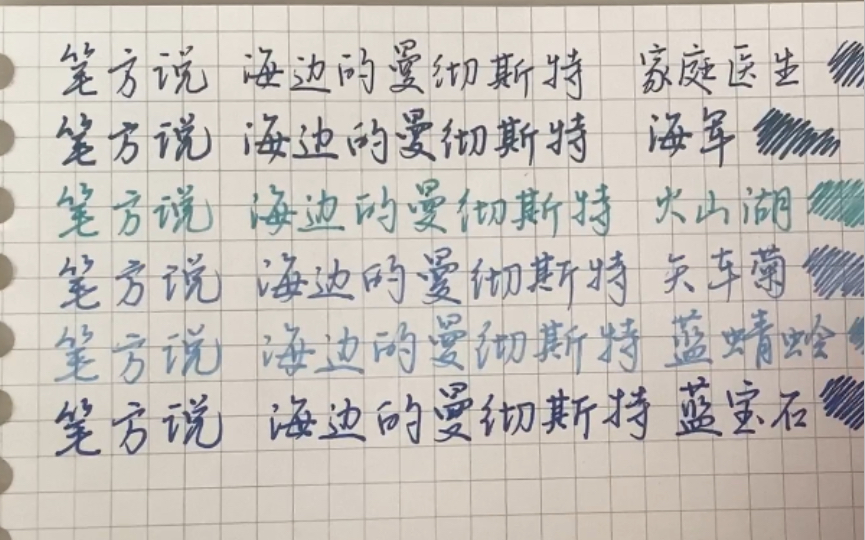 笔方说 海边的曼彻斯特 家庭医生
笔方说 海边的曼彻斯特 海军
笔方说 海边的曼彻斯特 火山湖
笔方说 海边的曼彻斯特 矢车菊
笔方说 海边的曼彻斯特 蓝蜻蛉
笔方说 海边的曼彻斯特 蓝宝石